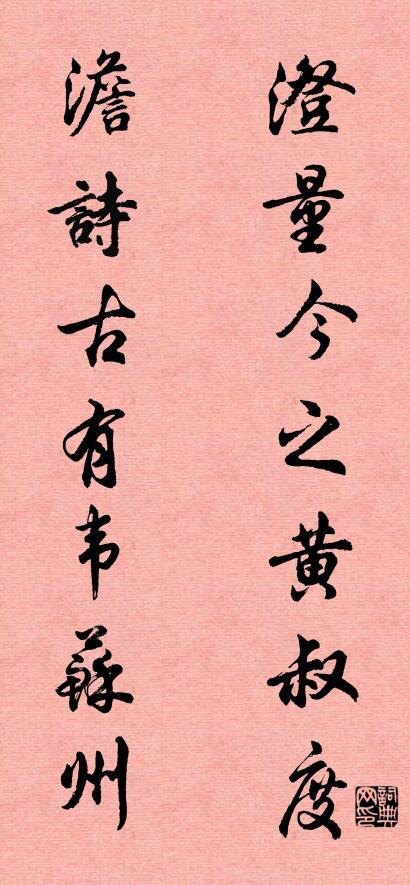 澄量今之黄叔度
澹詩古有韦蘇州
詞典网印